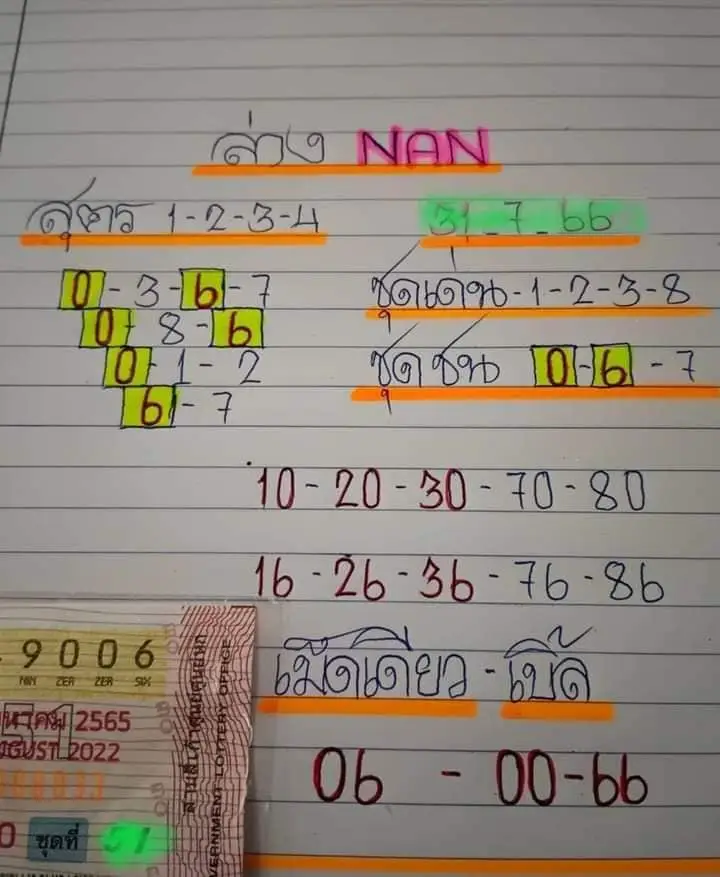 ล่าง NAN
สูตร 1-2-3-4
31-7-66
0-3-6-7
0-8-6
0-1-2
6-7
ชุดเด่น-1-2-3-8
ชุดชน 0-6-7
10-20-30-70-80
16-26-36-76-86
เม็ดเดียว-เบิ้ล
06 - 00-66
9 0 0 6
NIN ZER ZER SIX
2565
AUGUST 2022
0 ชุดที่ 51
GOVERNMENT LOTTERY OFFICE